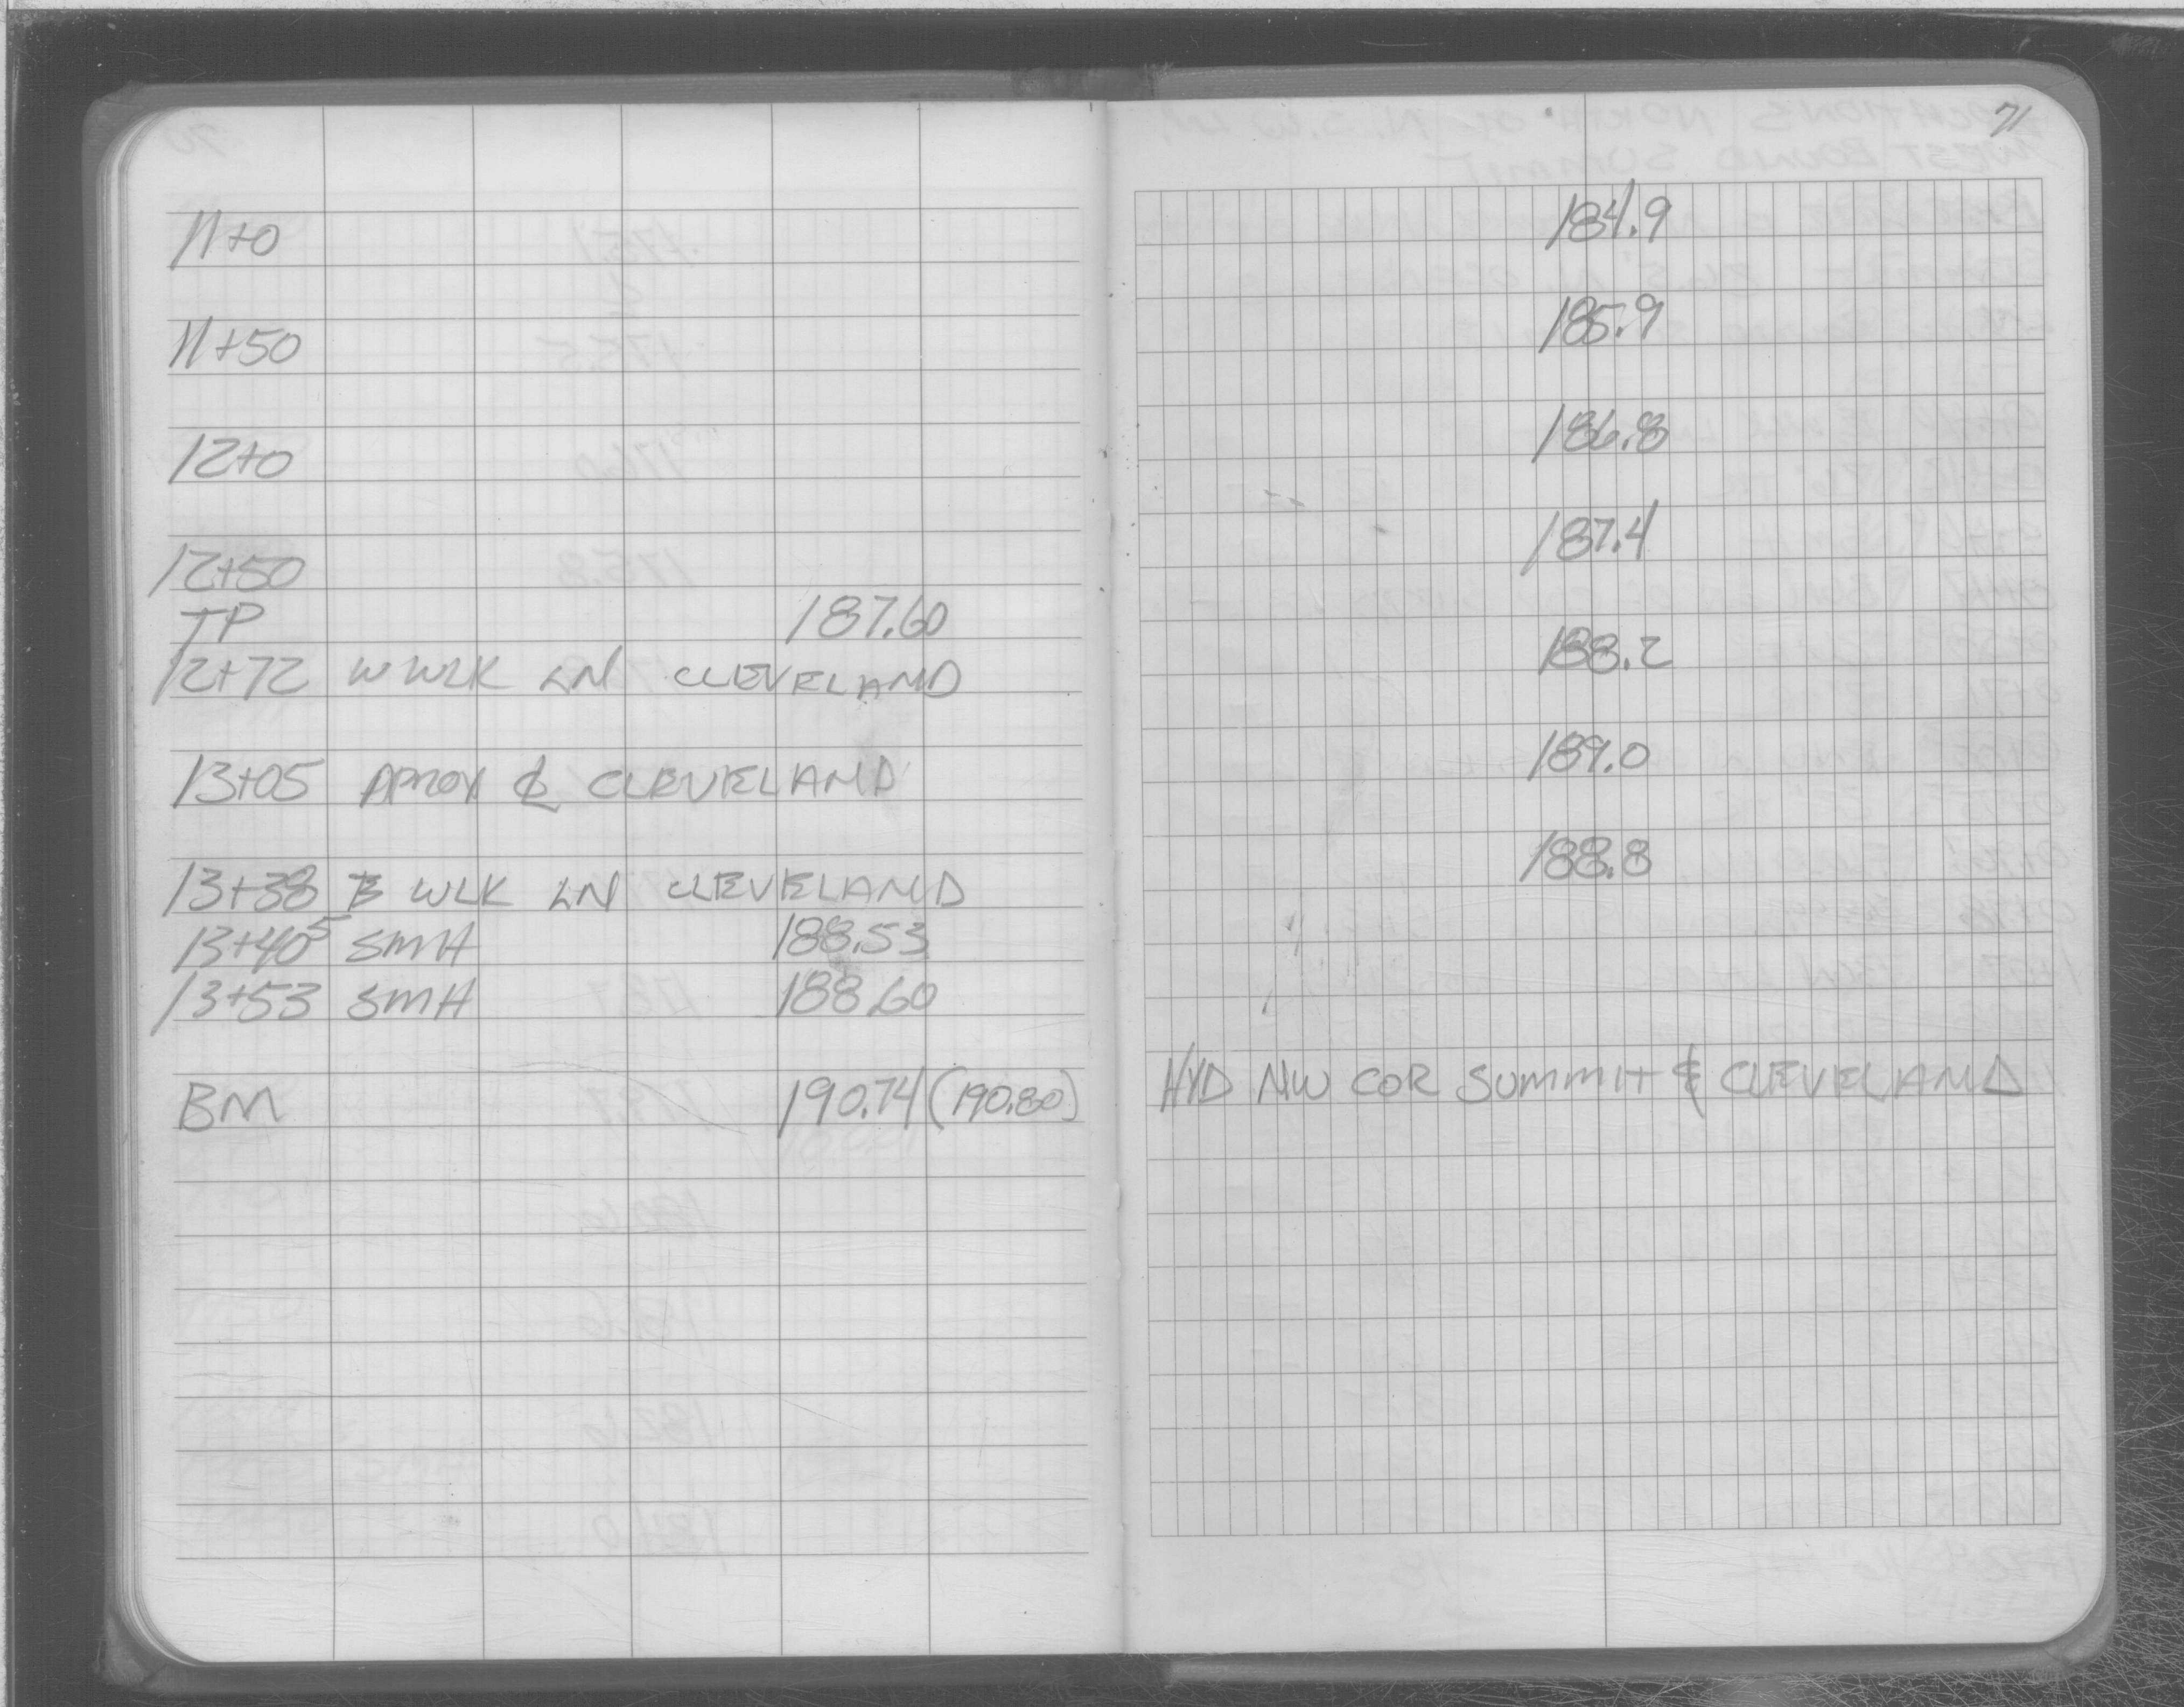 71
11+0 184.9
11+50 185.9
12+0 186.8
12+50 187.4
TP 187.60
12+72 W WLK LN CLEVELAND 188.2
13+05 APROX ℄ CLEVELAND 189.0
13+38 E WLK LN CLEVELAND 188.8
13+40⁵ SMH 188.53
13+53 SMH 188.60
BM 190.74 (190.80) HYD NW COR SUMMIT & CLEVELAND